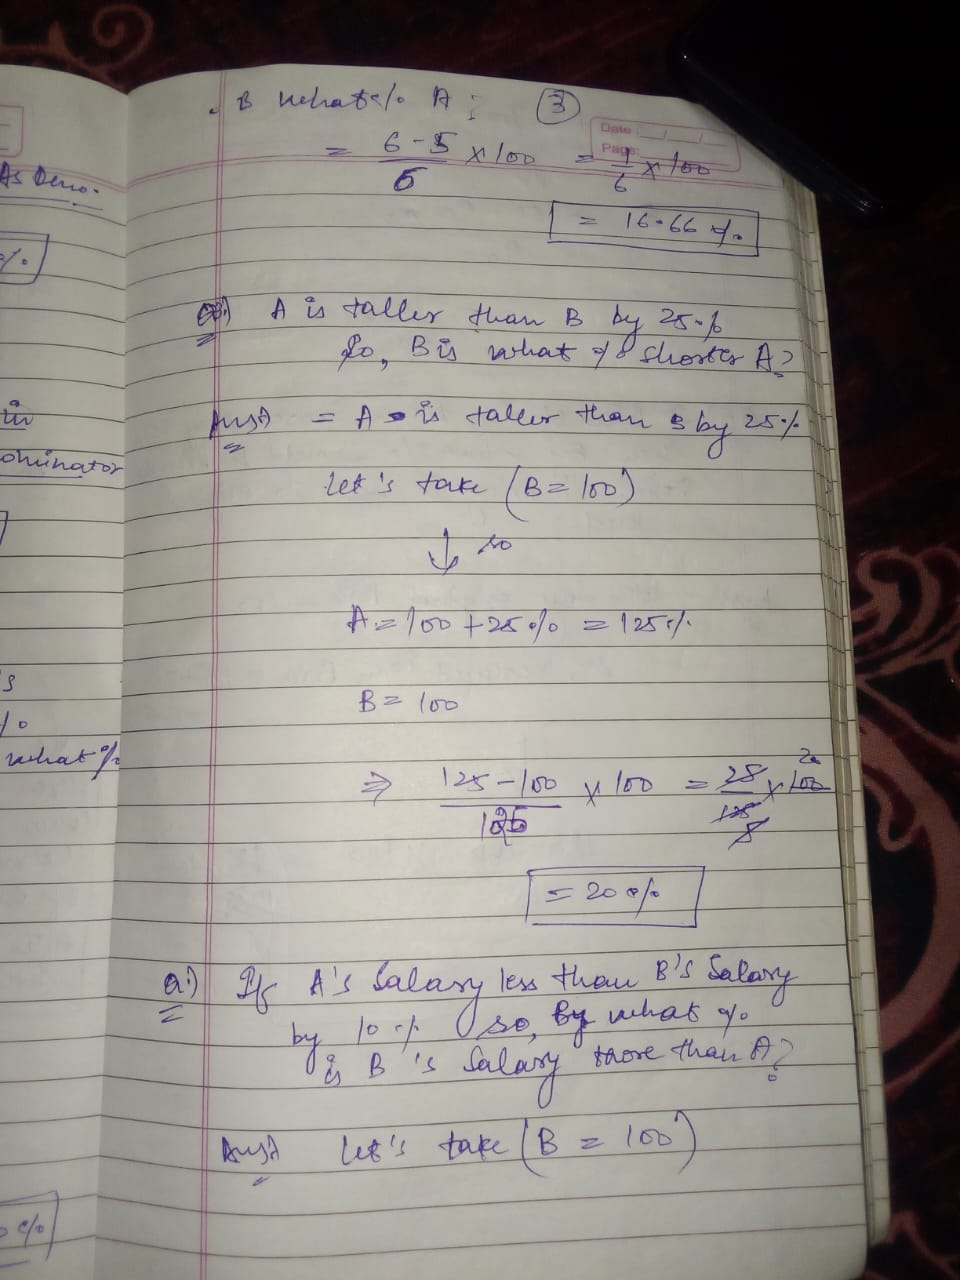 As Deno.
%
in
ominator
's
%
what %
%
. B what % A ? 3
Date
Page
= 6-5/6 x 100 = 1/6 x 100
= 16.66 %
Q.) A is taller than B by 25%
So, B is what % shorter A?
Ans) = A is taller than B by 25%
let's take (B = 100)
↓ so
A = 100 + 25% = 125%
B = 100
⇒ 125-100/125 x 100 = 25/125 x 100 20
5
= 20%
Q.) If A's Salary less than B's Salary
by 10% so, By what %
is B's Salary more than A?
Ans) let's take (B = 100)